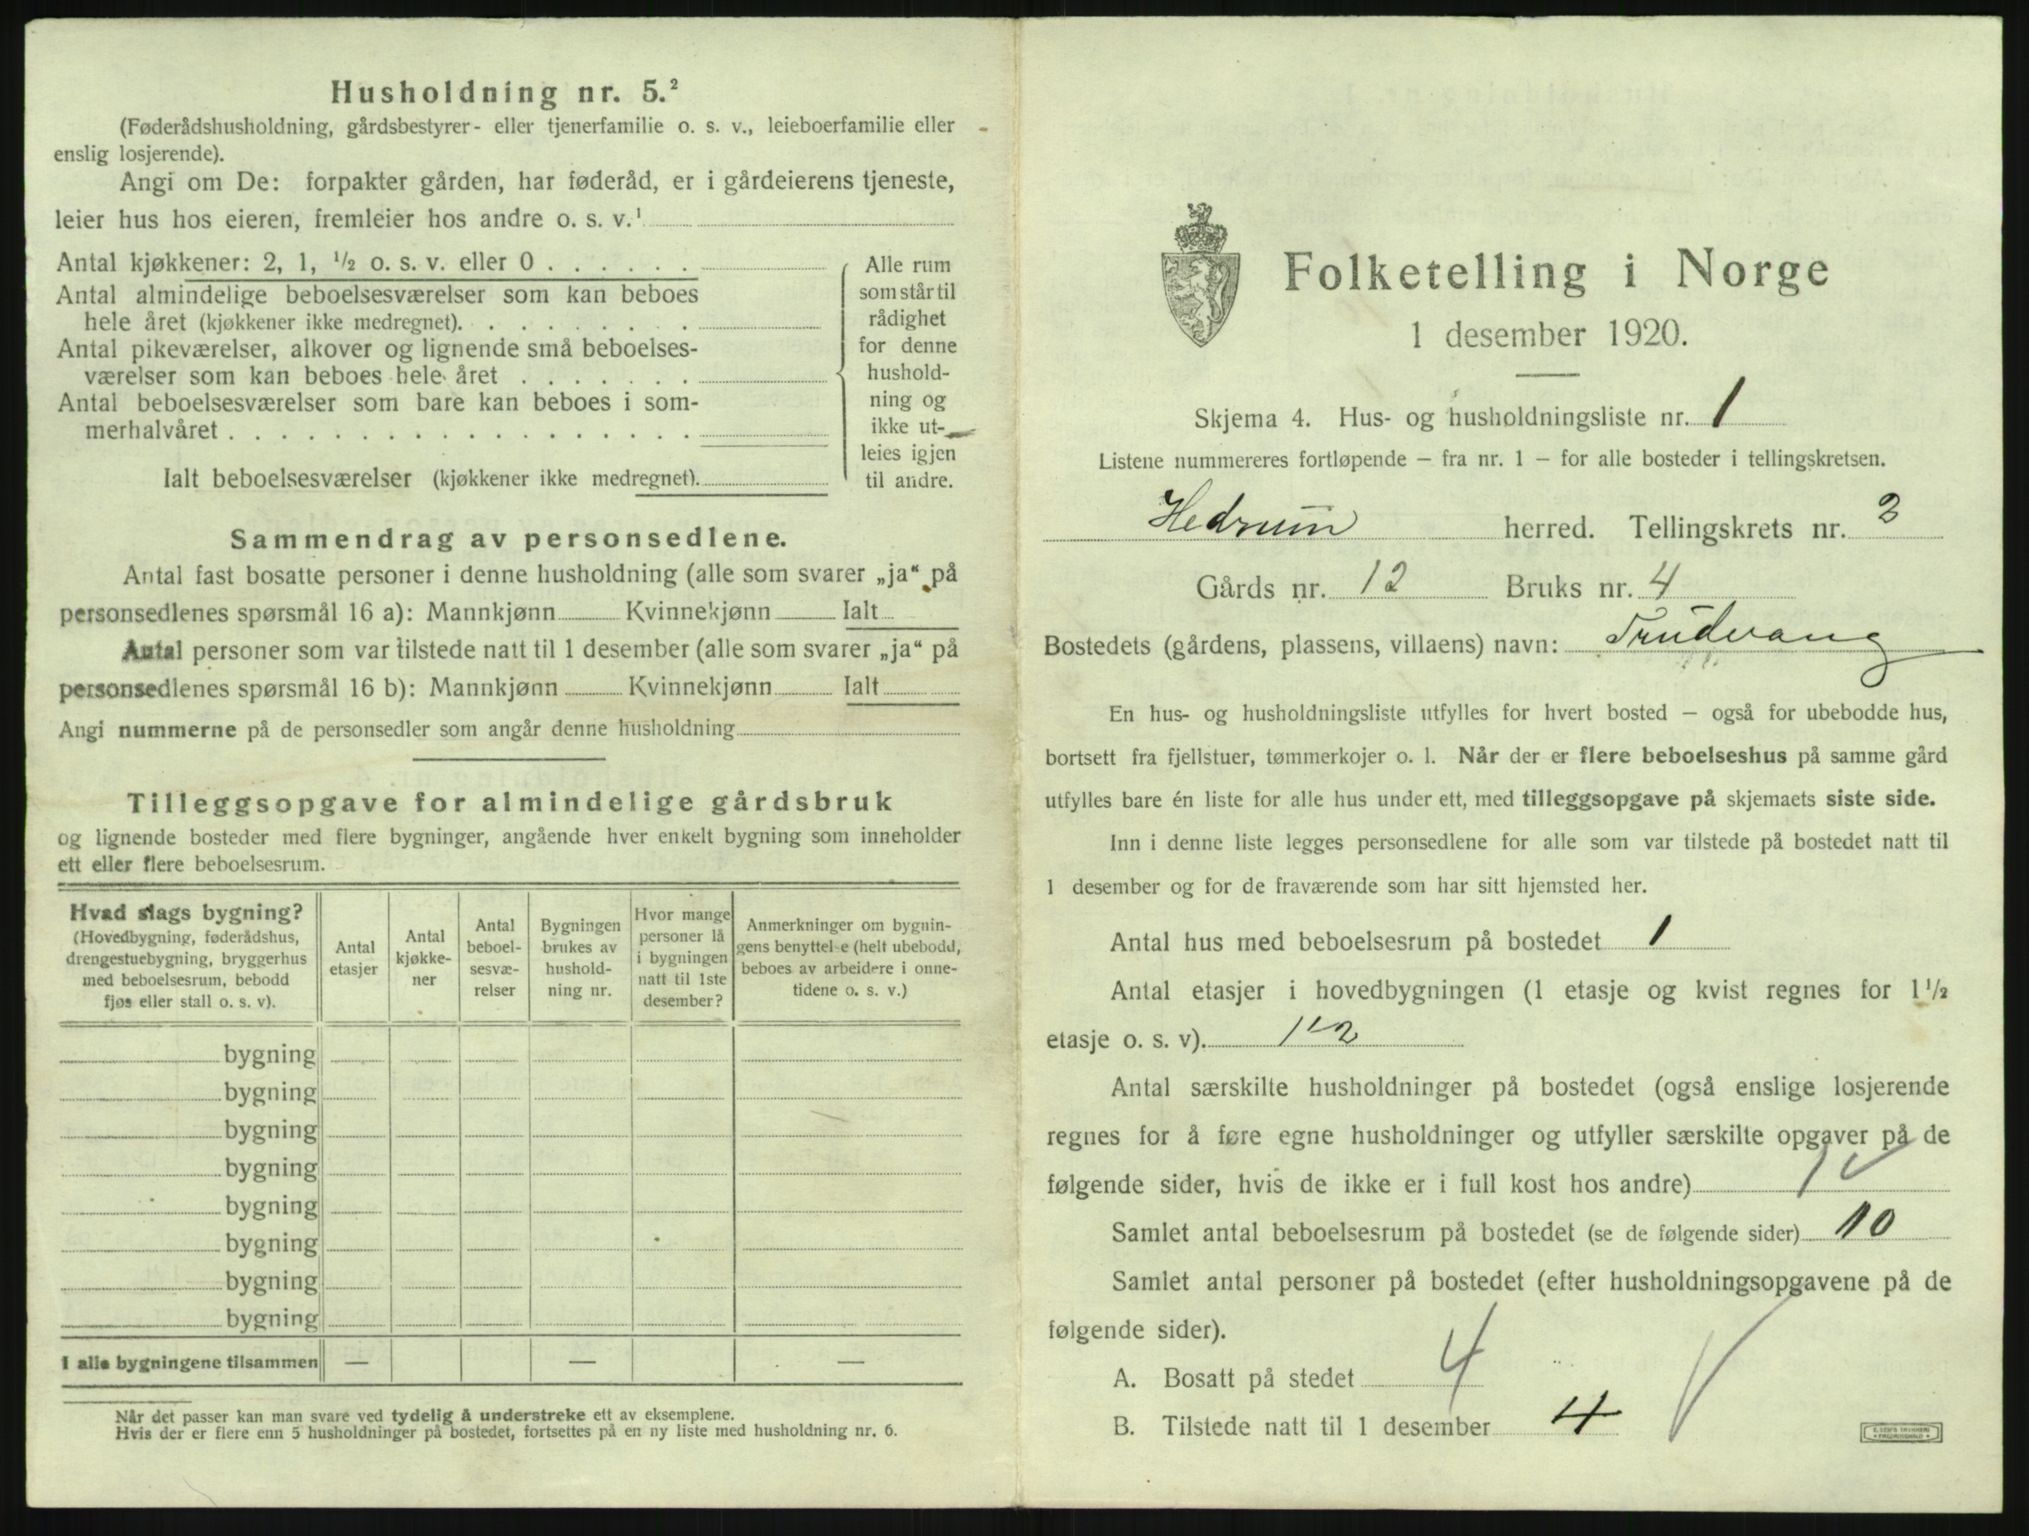 Husholdning nr. 5.²
(Føderådshusholdning, gårdsbestyrer- eller tjenerfamilie o. s. v., leieboerfamilie eller
enslig losjerende).
Angi om De: forpakter gården, har føderåd, er i gårdeierens tjeneste,
leier hus hos eieren, fremleier hos andre o. s. v.¹
Antal kjøkkener: 2, 1, ½ o. s. v. eller 0 . . . . . .
Antal almindelige beboelsesværelser som kan beboes
hele året (kjøkkener ikke medregnet). . . . . . . . .
Antal pikeværelser, alkover og lignende små beboelses-
værelser som kan beboes hele året . . . . . . .
Antal beboelsesværelser som bare kan beboes i som-
merhalvåret . . . . . . . . . . . . . . . . . .
Ialt beboelsesværelser (kjøkkener ikke medregnet).
Alle rum
som står til
rådighet
for denne
hushold-
ning og
ikke ut-
leies igjen
til andre.
Sammendrag av personsedlene.
Antal fast bosatte personer i denne husholdning (alle som svarer „ja“ på
personsedlenes spørsmål 16 a): Mannkjønn Kvinnekjønn Ialt
Antal personer som var tilstede natt til 1 desember (alle som svarer „ja“ på
personsedlenes spørsmål 16 b): Mannkjønn Kvinnekjønn Ialt
Angi nummerne på de personsedler som angår denne husholdning
Tilleggsopgave for almindelige gårdsbruk
og lignende bosteder med flere bygninger, angående hver enkelt bygning som inneholder
ett eller flere beboelsesrum.
Hvad slags bygning?
(Hovedbygning, føderådshus,
drengestuebygning, bryggerhus
med beboelsesrum, bebodd
fjøs eller stall o. s. v).
Antal
etasjer
Antal
kjøkke-
ner
Antal
beboel-
sesvæ-
relser
Bygningen
brukes av
hushold-
ning nr.
Hvor mange
personer lå
i bygningen
natt til 1ste
desember?
Anmerkninger om bygnin-
gens benyttelse (helt ubebodd,
beboes av arbeidere i onne-
tidene o. s. v.)
bygning
bygning
bygning
bygning
bygning
bygning
bygning
bygning
I alle bygningene tilsammen — — —
Når det passer kan man svare ved tydelig å understreke ett av eksemplene.
Hvis der er flere enn 5 husholdninger på bostedet, fortsettes på en ny liste med husholdning nr. 6.
Folketelling i Norge
1 desember 1920.
Skjema 4. Hus- og husholdningsliste nr. 1
Listene nummereres fortløpende — fra nr. 1 — for alle bosteder i tellingskretsen.
Hedrum herred. Tellingskrets nr. 3
Gårds nr. 12 Bruks nr. 4
Bostedets (gårdens, plassens, villaens) navn: Trudvang
En hus- og husholdningsliste utfylles for hvert bosted — også for ubebodde hus,
bortsett fra fjellstuer, tømmerkojer o. l. Når der er flere beboelseshus på samme gård
utfylles bare én liste for alle hus under ett, med tilleggsopgave på skjemaets siste side.
Inn i denne liste legges personsedlene for alle som var tilstede på bostedet natt til
1 desember og for de fraværende som har sitt hjemsted her.
Antal hus med beboelsesrum på bostedet 1
Antal etasjer i hovedbygningen (1 etasje og kvist regnes for 1½
etasje o. s. v). 1½
Antal særskilte husholdninger på bostedet (også enslige losjerende
regnes for å føre egne husholdninger og utfyller særskilte opgaver på de
følgende sider, hvis de ikke er i full kost hos andre) 1
Samlet antal beboelsesrum på bostedet (se de følgende sider) 10
Samlet antal personer på bostedet (efter husholdningsopgavene på de
følgende sider).
A. Bosatt på stedet 4
B. Tilstede natt til 1 desember 4